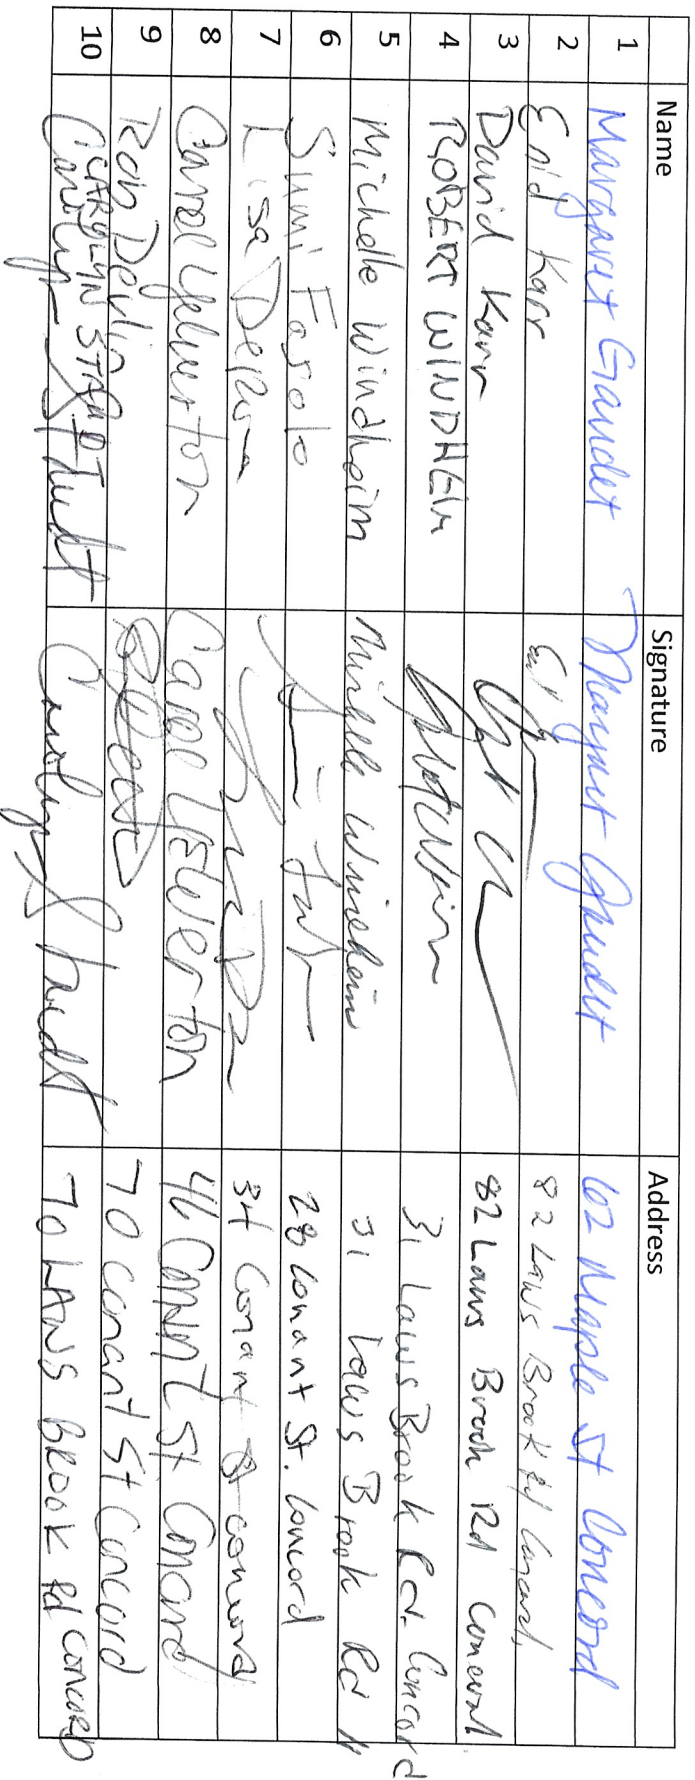 Name Signature Address
1 Margaret Gaudet Margaret Gaudet 62 Maple St Concord
2 Enid Karr 82 Laws Brook Rd Concord,
3 David Karr 82 Laws Brook Rd Concord
4 ROBERT WINDHEIM 31 Laws Brook Rd. Concord
5 Michelle Windheim Michelle Windheim 31 Laws Brook Rd "
6 Sumi Fasolo 28 Conant St. Concord
7 Lisa 34 Conant St Concord
8 Carol Yelverton Carol Yelverton 46 Conant St Concord
9 Rob Devlin 70 Conant St Concord
10 CAROLYN STARDT 70 LAWS BROOK Rd CONCORD